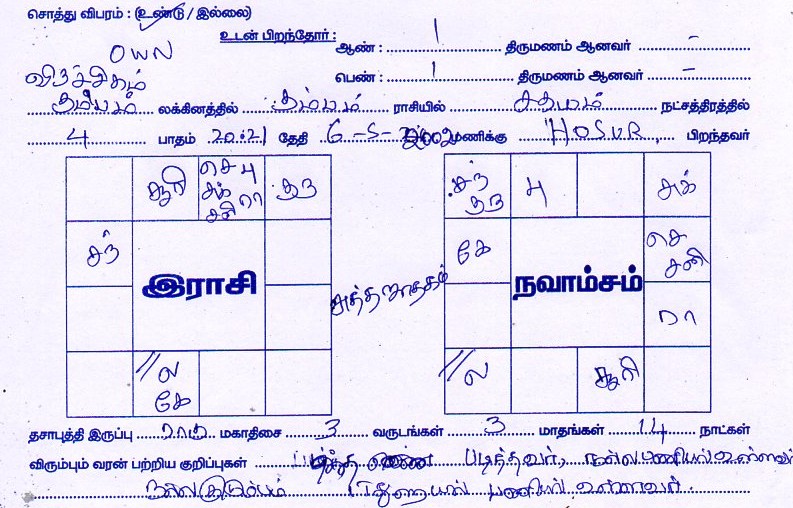 சொத்து விபரம் : (உண்டு / இல்லை)
OWN
உடன் பிறந்தோர் : ஆண் : 1 திருமணம் ஆனவர் -
பெண் : 1 திருமணம் ஆனவர் -
விருச்சிகம்
லக்கினத்தில் கும்பம் ராசியில் சதயம் நட்சத்திரத்தில்
4 பாதம் 20:21 தேதி 6-5-2002 மணிக்கு HOSUR, பிறந்தவர்
சூரி
செ பு
சுக்
சனி ரா
குரு
சந்
இராசி
//ல
கே
சுத்த ஜாதகம்
சந்
குரு
பு
சுக்
கே
செ
சனி
நவாம்சம்
ரா
//ல
சூரி
தசாபுத்தி இருப்பு ராகு மகாதிசை 3 வருடங்கள் 3 மாதங்கள் 14 நாட்கள்
விரும்பும் வரன் பற்றிய குறிப்புகள் படித்தவர், நல்ல பணியில் உள்ளவர்
நல்ல குடும்பம் பணியில் உள்ளவர்.